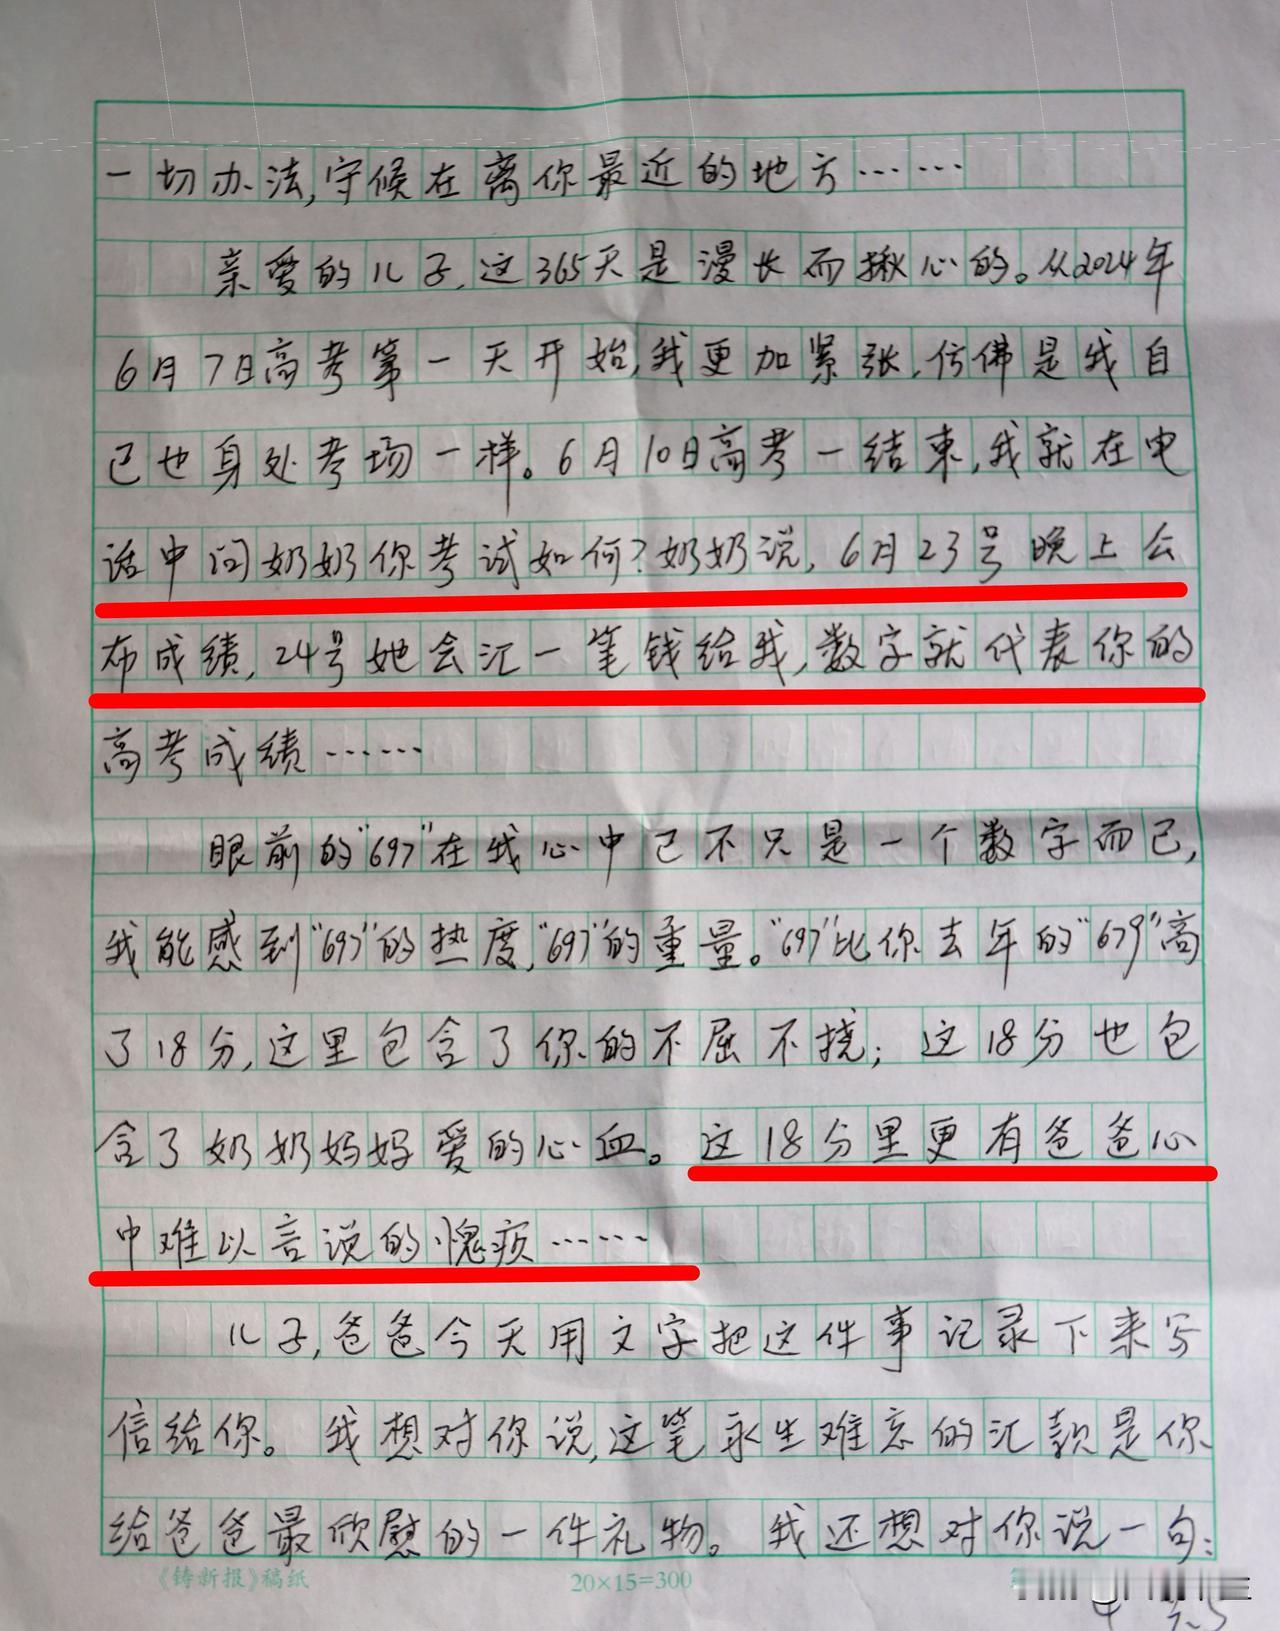 一切办法,守候在离你最近的地方……
亲爱的儿子,这365天是漫长而揪心的。从2024年
6月7日高考第一天开始,我更加紧张,仿佛是我自
己也身处考场一样。6月10日高考一结束,我就在电
话中问奶奶你考试如何?奶奶说,6月23号晚上公
布成绩,24号她会汇一笔钱给我,数字就代表你的
高考成绩……
眼前的"697"在我心中已不只是一个数字而已,
我能感到"697"的热度,"697"的重量。"697"比你去年的"679"高
了18分,这里包含了你的不屈不挠;这18分也包
含了奶奶妈妈爱的心血。这18分里更有爸爸心
中难以言说的愧疚……
儿子,爸爸今天用文字把这件事记录下来写
信给你。我想对你说,这笔永生难忘的汇款是你
给爸爸最欣慰的一件礼物。我还想对你说一句:
《铸新报》稿纸 20×15=300